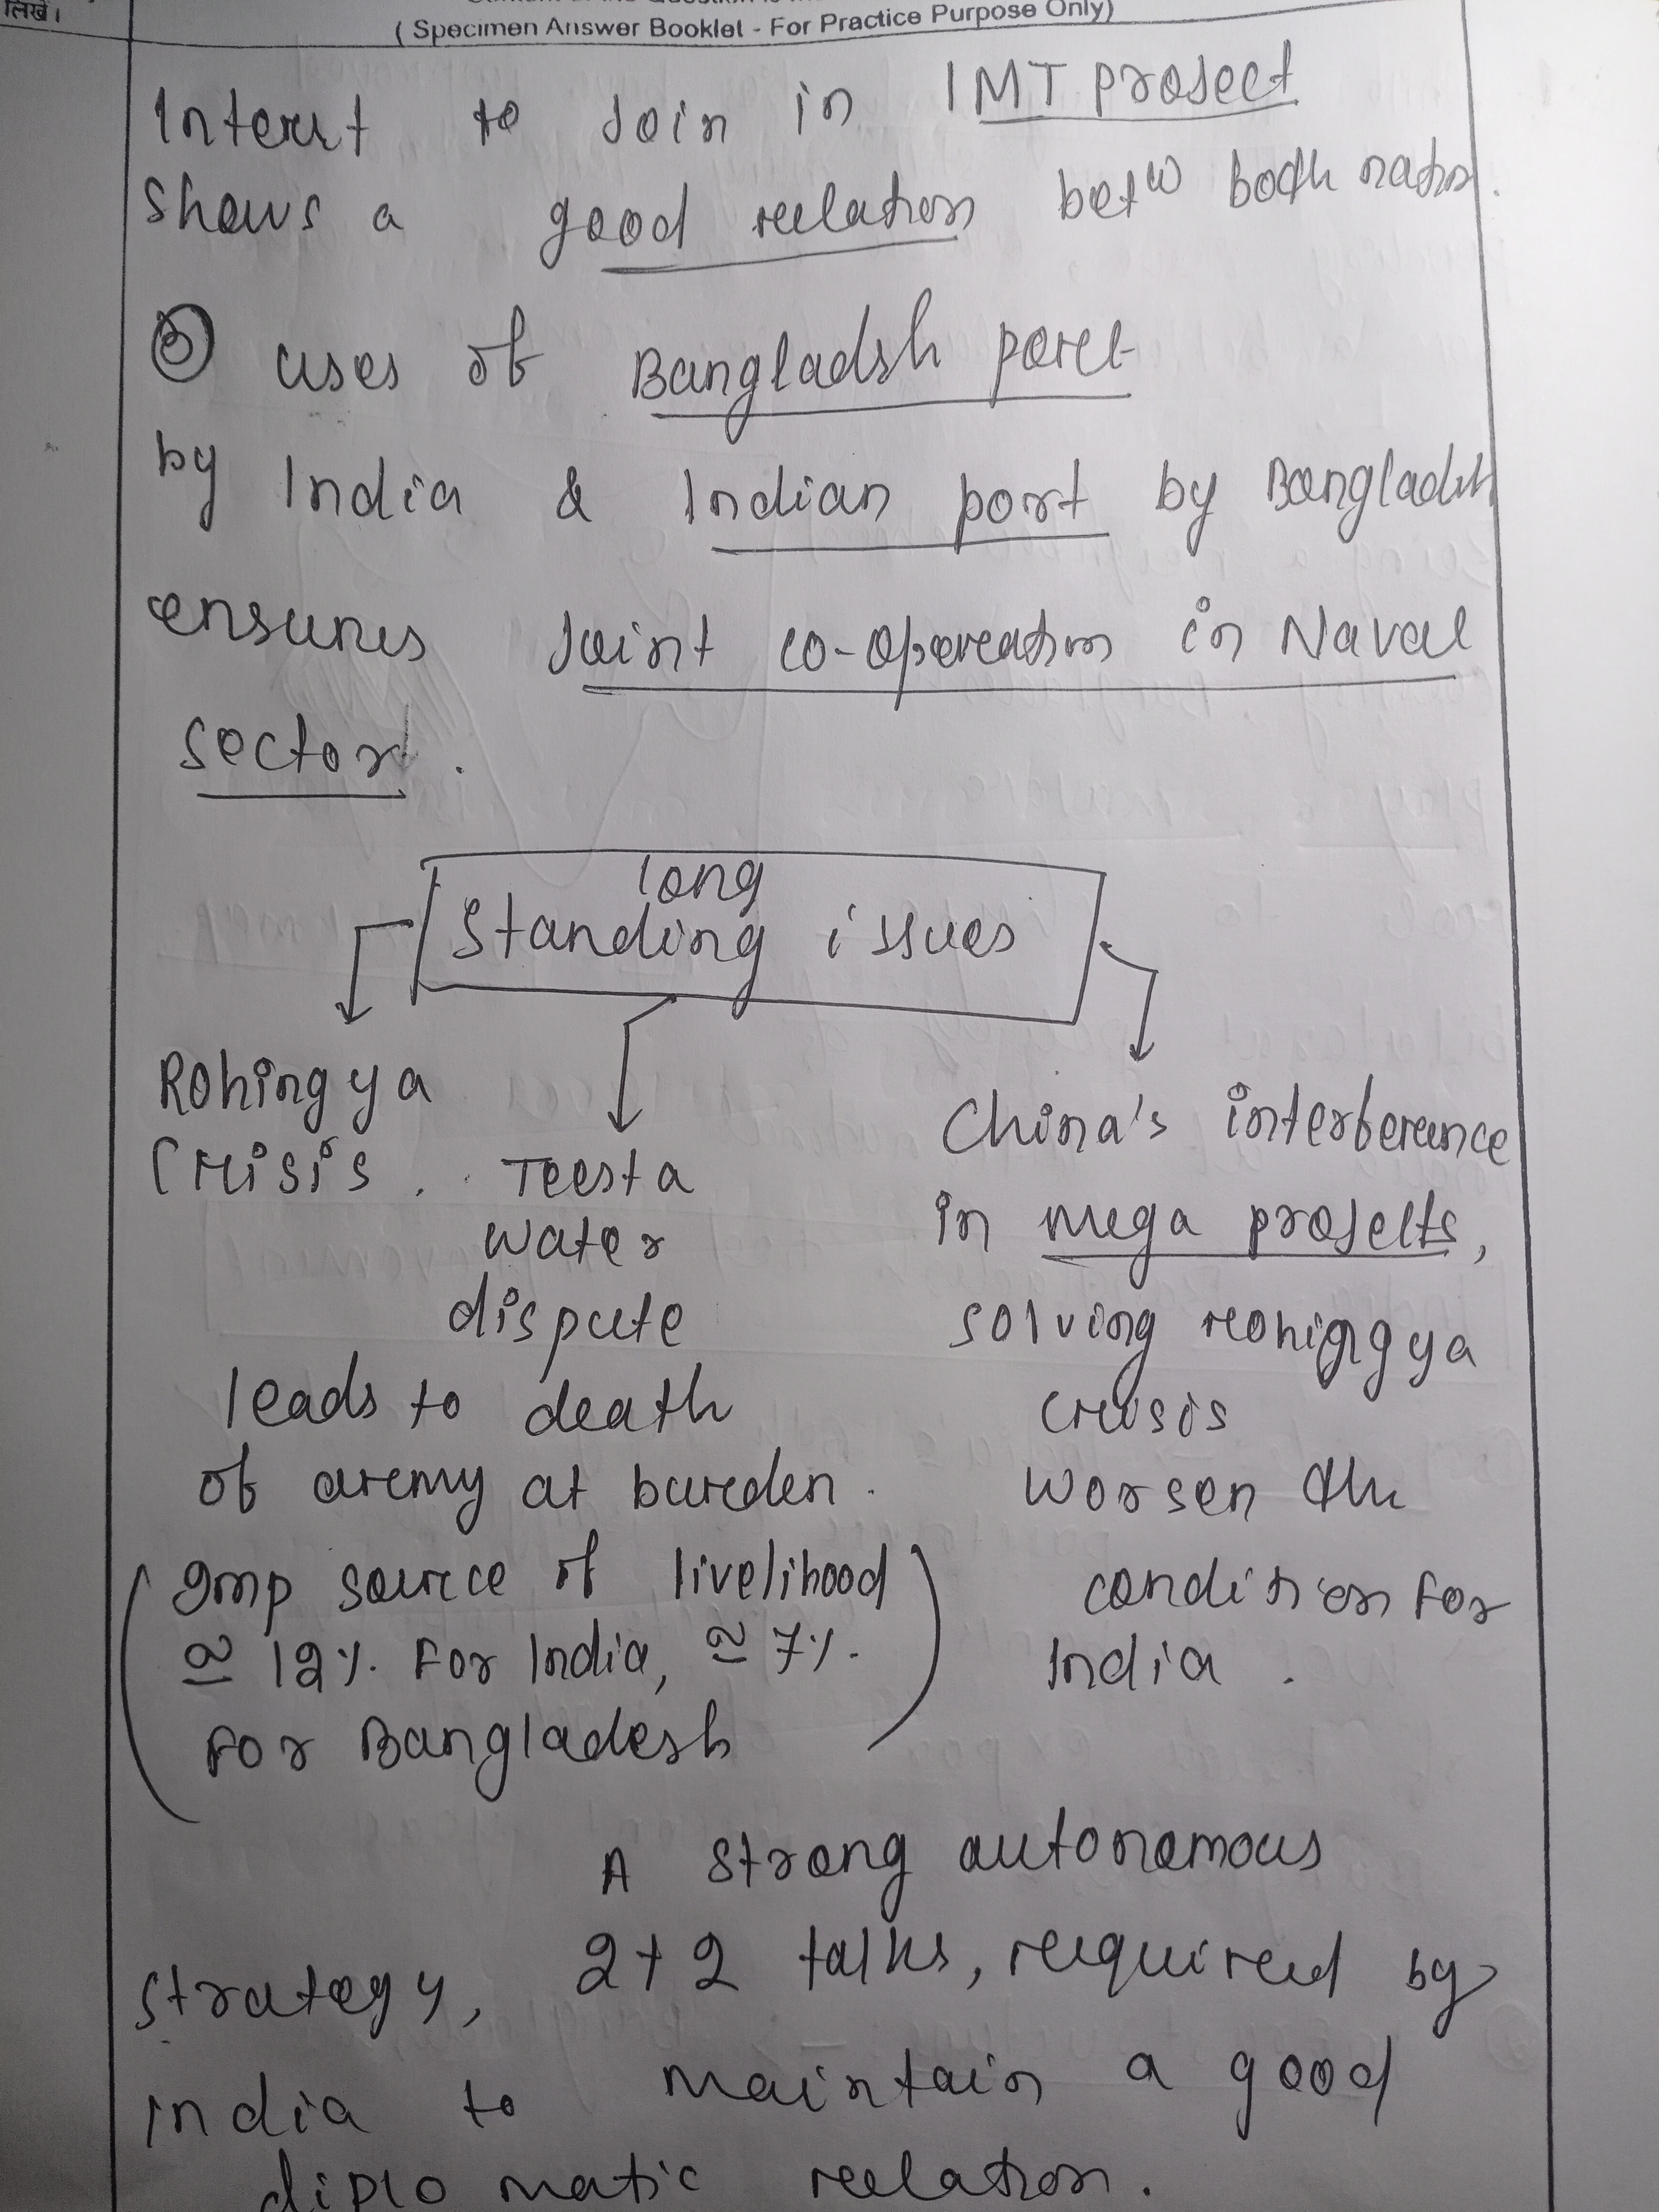 लिखें।
( Specimen Answer Booklet - For Practice Purpose Only)
Interst to Join in IMT project
shows a good relation betw both nation.
③ uses of Bangladsh port
by India & Indian port by Bangladsh
ensures Joint co-operation in Naval
sector.
long
standing issues
Rohingya
Crisis.
Teesta
water
dispute
leads to death
of army at burden.
(Imp source of livelihood
≃ 12%. For India, ≃ 7%.
For Bangladesh)
China's interference
in mega projects,
solving rohiggya
crisis
worsen the
condition For
India.
A strong autonomous
strategy, 2+2 talks, required by
india to maintain a good
diplomatic relation.